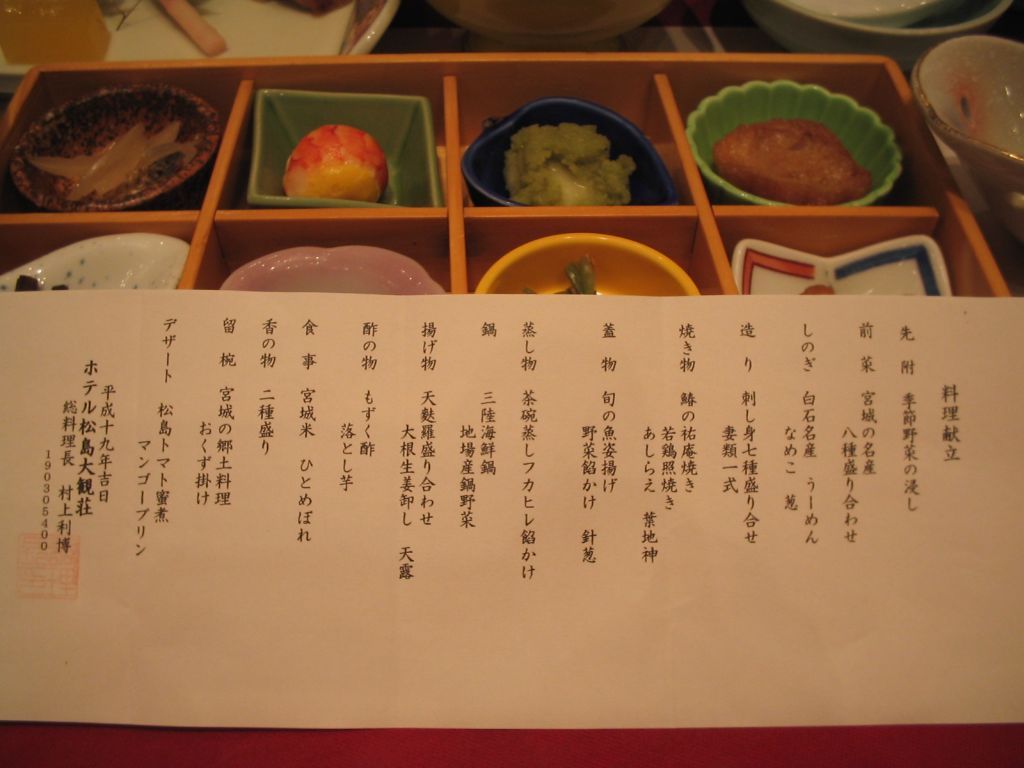 料理献立
先 附 季節野菜の浸し
前 菜 宮城の名産
八種盛り合わせ
しのぎ 白石名産 うーめん
なめこ 葱
造 り 刺し身七種盛り合せ
妻類一式
焼き物 鰆の祐庵焼き
若鶏照焼き
あしらえ 葉地神
蓋 物 旬の魚姿揚げ
野菜餡かけ 針葱
蒸し物 茶碗蒸しフカヒレ餡かけ
鍋 三陸海鮮鍋
地場産鍋野菜
揚げ物 天麩羅盛り合わせ
大根生姜卸し 天露
酢の物 もずく酢
落とし芋
食 事 宮城米 ひとめぼれ
香の物 二種盛り
留 椀 宮城の郷土料理
おくず掛け
デザート 松島トマト蜜煮
マンゴープリン
平成十九年吉日
ホテル松島大観荘
総料理長 村上利博
190305400